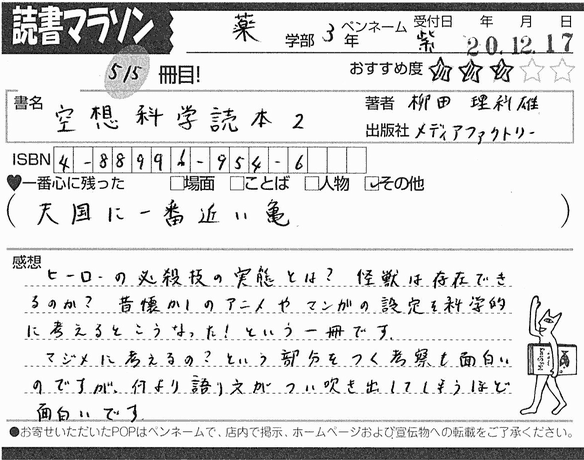 読書マラソン
薬 学部 3年 ペンネーム 紫 受付日 年 月 日
20.12.17
515 冊目!
おすすめ度 ★★★☆☆
書名 空想科学読本2
著者 柳田 理科雄
出版社 メディアファクトリー
ISBN 4-88991-954-6
♥一番心に残った □場面 □ことば □人物 ☑その他
(天国に一番近い亀)
感想
ヒーローの必殺技の実態とは? 怪獣は存在でき
るのか? 昔懐かしのアニメやマンガの設定を科学的
に考えるとこうなった!という一冊です。
マジメに考えるの?という部分をつく考察も面白い
のですが、何より語り文がつい吹き出してしまうほど
面白いです。
●お寄せいただいたPOPはペンネームで、店内で掲示、ホームページおよび宣伝物への転載をご了承ください。